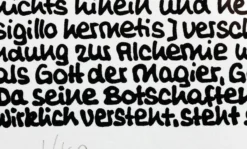 nichts hinein und he
sigillo hermetis] versc
ndung zur Alchemie u
als Gott der Magier, G
Da seine Botschaften
wirklich versteht, steht s